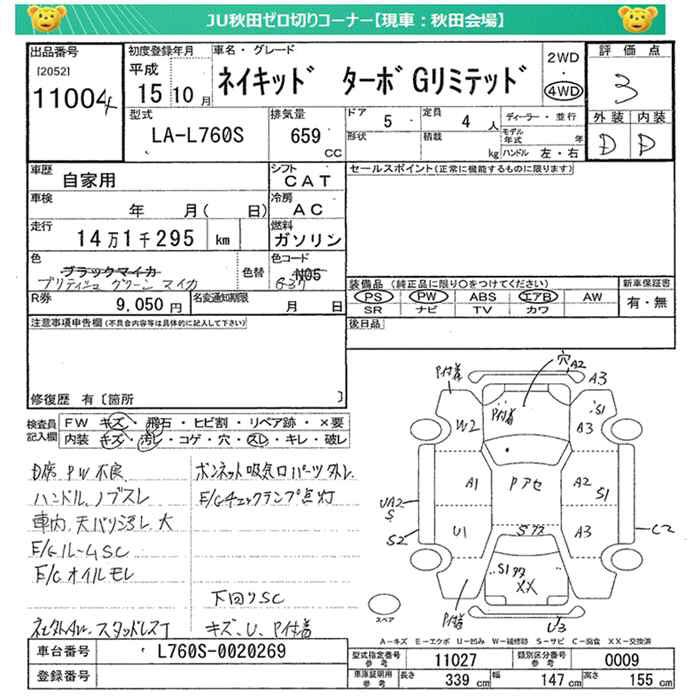 JU秋田ゼロ切りコーナー【現車：秋田会場】
出品番号
[2052]
11004
初度登録年月
平成
15年10月
車名・グレード
ネイキッド ターボGリミテッド
2WD
・
4WD
評価点
3
外装 内装
D D
型式
LA-L760S
排気量
659
CC
ドア
5
定員
4人
形状
積載
kg
ディーラー・並行
モデル年式 年
ハンドル 左・右
車歴
自家用
シフト
CAT
セールスポイント(正常に機能するものに限ります)
車検
年 月( 日)
冷房
AC
走行
14万1千295 km
燃料
ガソリン
色
ブラックマイカ
ブリティッシュグリーンマイカ
色替
色コード
N05
G37
装備品 (純正品に限り○をつけてください)
PS PW ABS エアB AW
SR ナビ TV カワ
新車保証書
有・無
R券
9,050円
名変通知期限
月 日
後日品
注意事項申告欄(不具合内容等は具体的に記入して下さい)
修復歴 有〔箇所 〕
検査員記入欄
FW キズ・飛石・ヒビ割・リペア跡・×要
内装 キズ・汚レ・コゲ・穴・スレ・キレ・破レ
D席PW不良
ハンドル、ノブスレ
車内、天バリ汚レ大
E/Gルーム SC
E/Gオイルモレ
スタッドレス
ボンネット吸気口パーツ外レ
E/Gチェックランプ点灯
下回りSC
キズ、U、P付着
P付着
穴
A2
A3
W2
P付着
S1
A3
A1
Pアセ
A2
S1
UA2
S
S2
U1
Sアス
A3
C2
S1アス
XX
P付着
U3
スペア
A-キズ E-エクボ U-凹み W-補修跡 S-サビ C-腐食 XX-交換済
車台番号
L760S-0020269
登録番号
型式指定番号
参考
11027
類別区分番号
参考
0009
車庫証明用
参考
長さ
339 cm
幅
147 cm
高さ
155 cm